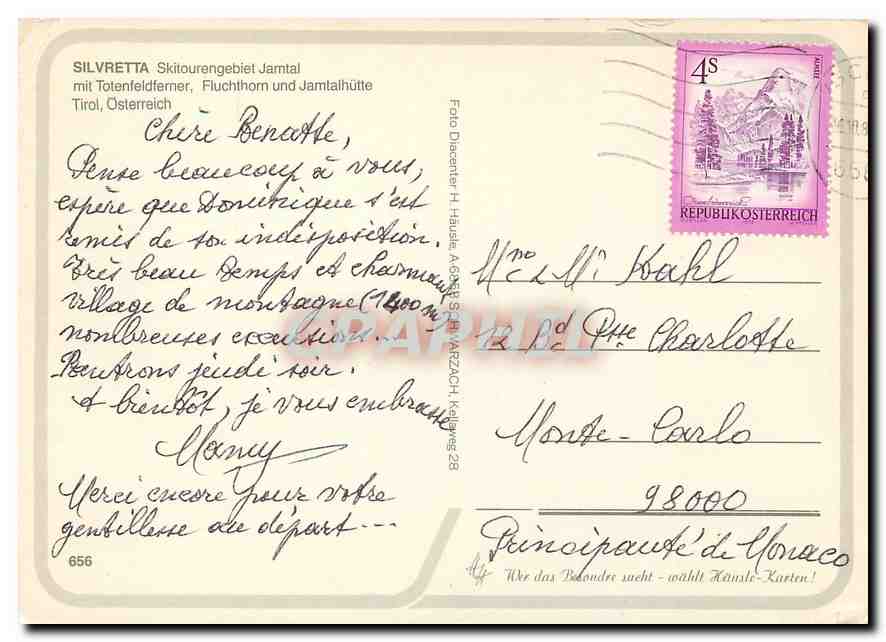 SILVRETTA Skitourengebiet Jamtal
mit Totenfeldferner, Fluchthorn und Jamtalhütte
Tirol, Österreich
Chère Renatte,
Pense beaucoup à vous,
espère que Dominique s'est
remis de son indisposition.
Très beau temps et charmant
village de montagne (1400 m)
nombreuses excursions...
Rentrons jeudi soir.
A bientôt, je vous embrasse
Mamy
Merci encore pour votre
gentillesse au départ---
656
Foto Diacenter H. Häusle, A-6858 SCHWARZACH, Kellaweg 28
4S
ALMSEE
REPUBLIK ÖSTERREICH
Kahl
12 Bd Psse Charlotte
Monte-Carlo
98000
Principauté de Monaco
Wer das Besondre sucht - wählt Häusle-Karten!
CPAPHIL